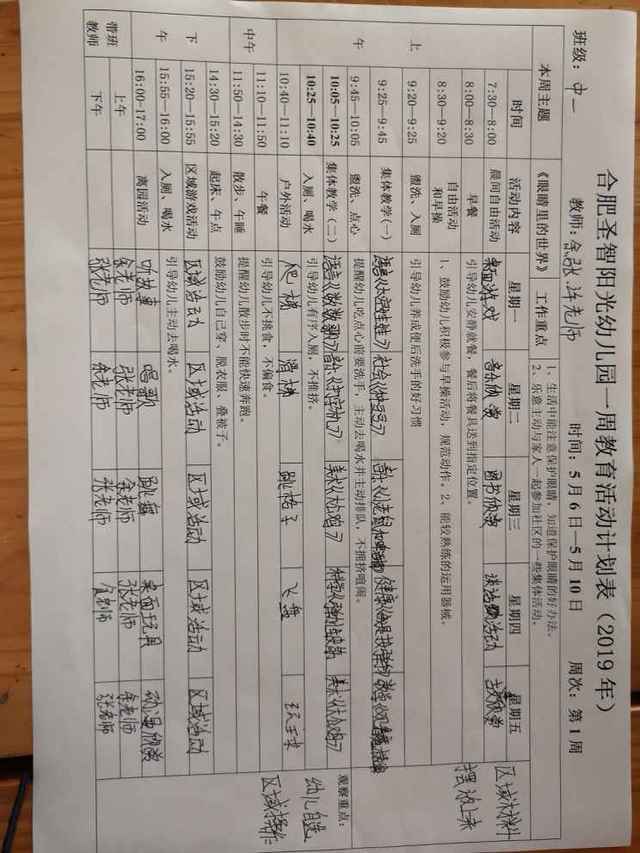 合肥圣智阳光幼儿园一周教育活动计划表（2019年）
班级：中一 教师：余、张、许老师 时间：5月6日—5月10日 周次：第1周
本周主题 《眼睛里的世界》 工作重点 1、生活中能注意保护眼睛，知道保护眼睛的好办法。
2、乐意主动与家人一起参加社区的一些集体活动。
时间 活动内容 星期一 星期二 星期三 星期四 星期五
上午
7:30—8:00 晨间自由活动 桌面游戏 音乐欣赏 图书欣赏 谈话活动 欣赏
8:00—8:30 早餐 引导幼儿安静就餐，餐后将餐具送到指定位置。
8:30—9:20 自由活动和早操 1、鼓励幼儿积极参与早操活动，规范动作。2、能较熟练的运用器械。
9:20—9:25 盥洗、入厕 引导幼儿养成便后洗手的好习惯
9:25—9:45 集体教学（一）
9:45—10:05 盥洗、点心 提醒幼儿吃点心前要洗手，主动去喝水并主动排队，不拥挤喧闹。
10:05—10:25 集体教学（二）
10:25—10:40 入厕、喝水 引导幼儿有序入厕，不推挤。
10:40—11:10 户外活动 爬梯 滑梯 跳格子 飞盘 玩毛球
中午
11:10—11:50 午餐 引导幼儿不挑食，不偏食。
11:50—14:30 散步、午睡 提醒幼儿散步时不能快速奔跑。
下午
14:30—15:20 起床、午点 鼓励幼儿自己穿、脱衣服、叠被子。
15:20—15:55 区域游戏活动 区域活动 区域活动 区域活动 区域活动 区域活动
15:55—16:00 入厕、喝水 引导幼儿主动去喝水。
16:00—17:00 离园活动 听故事 唱歌 跳舞 桌面玩具 动漫欣赏
带班教师 上午 余老师 张老师 余老师 张老师 余老师
下午 张老师 余老师 张老师 余老师 张老师
区域材料
摆放上来
观察重点：
幼儿自选
区域操作